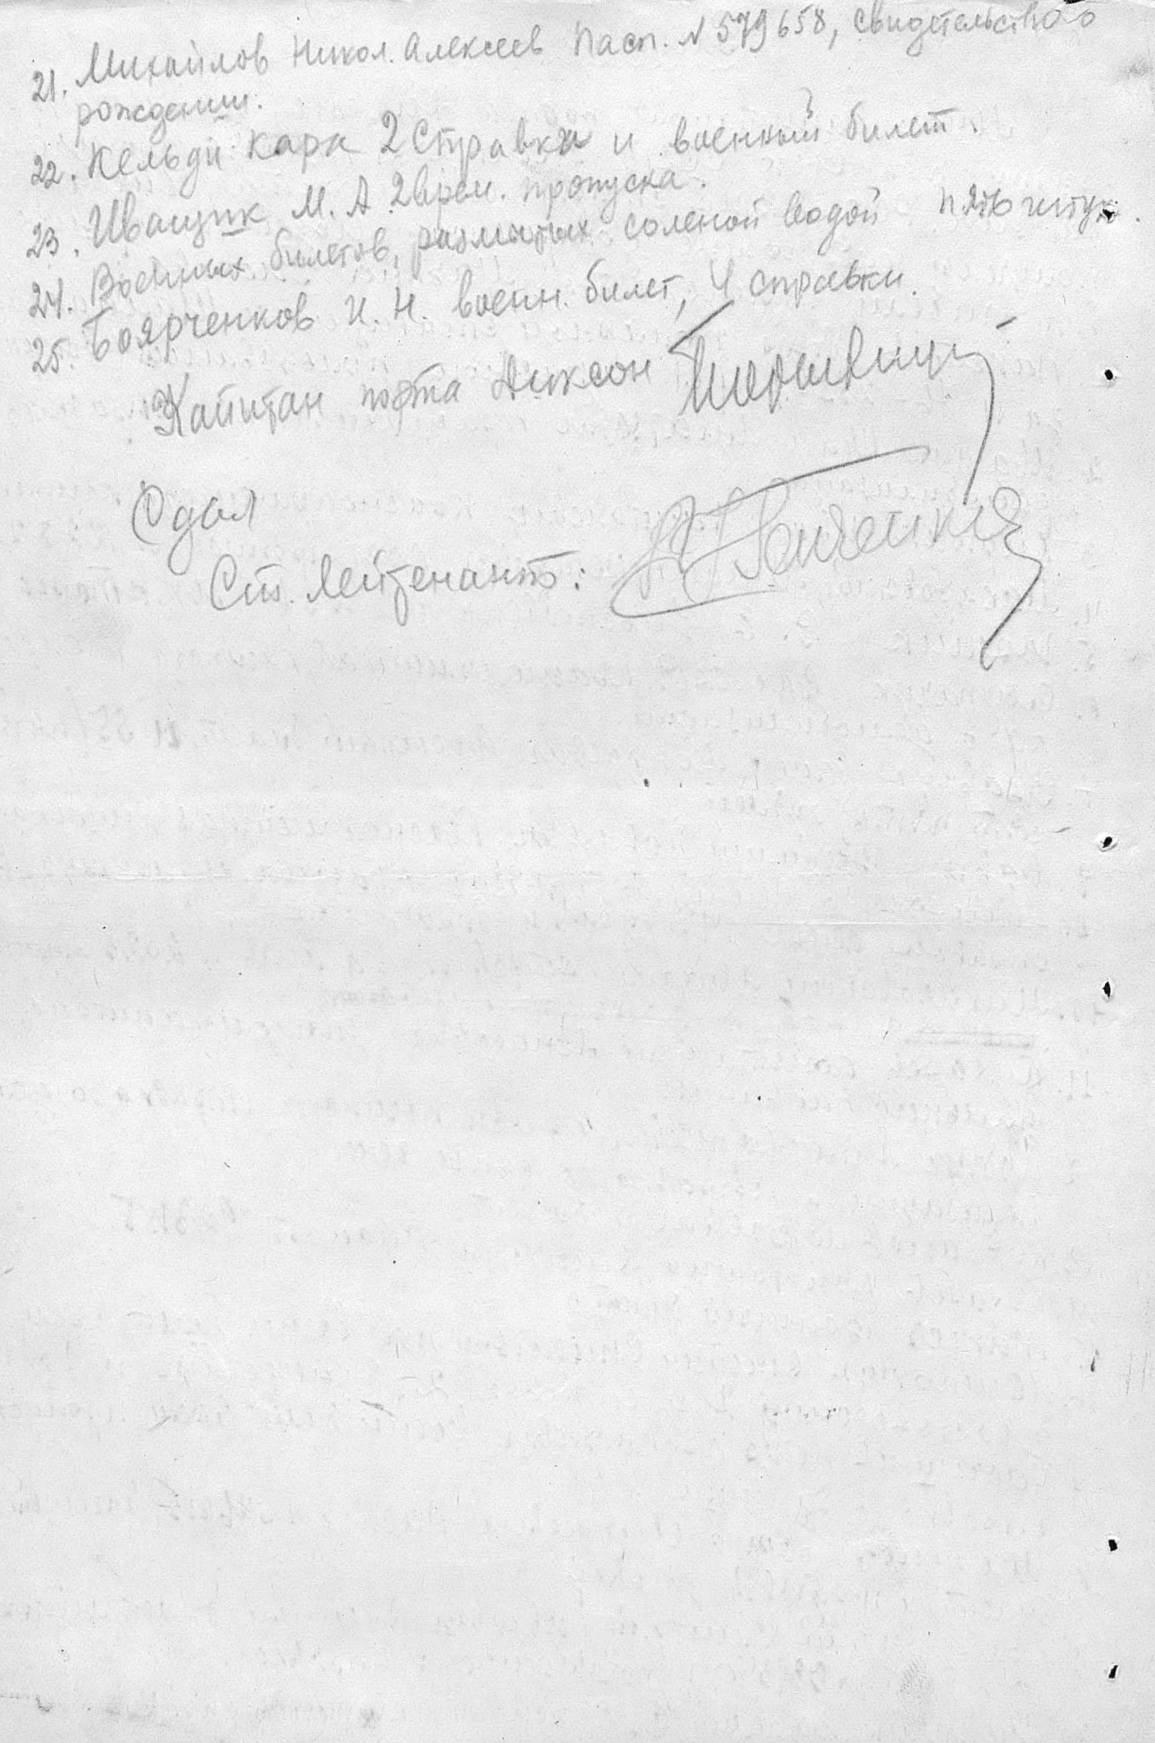 21. Михайлов Никол. Алексеев пасп. N 579658, свидетельство о
рождении.
22. Кельди Кара 2 справки и военный билет.
23. Иващук М. А. 2 врем. пропуска.
24. Военных билетов, размытых соленой водой пять штук.
25. Боярченков И. Н. военн. билет, 4 справки.
Капитан порта Диксон
Сдал
Ст. Лейтенант: